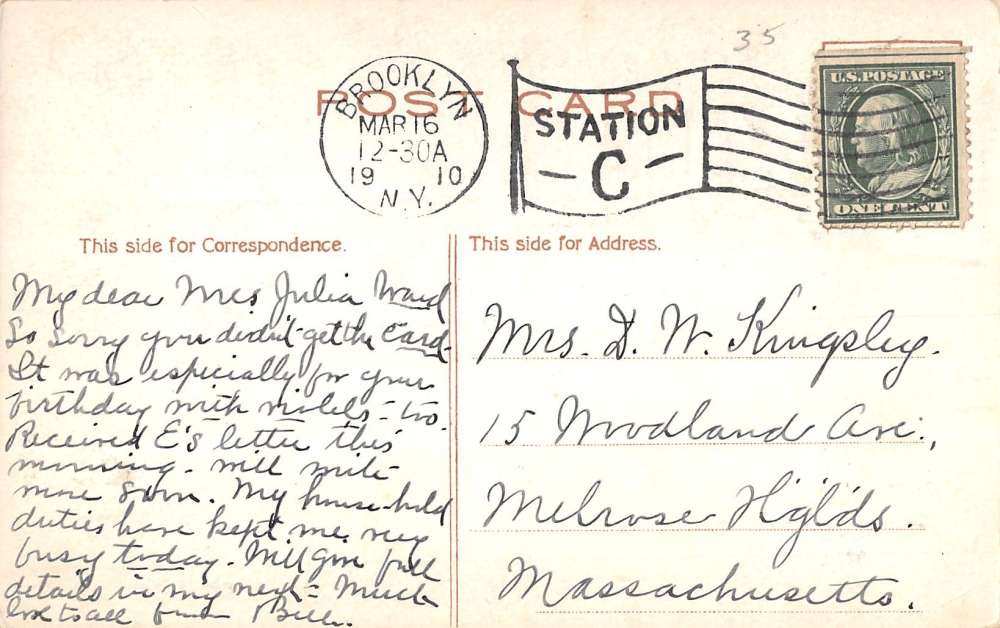 35
U.S. POSTAGE
ONE CENT
POST CARD
BROOKLYN
MAR 16
12-30A
19 10
N.Y.
STATION
- C -
This side for Correspondence.
My dear Mrs Julia Ward
So sorry you didn't get the card-
It was especially for your
birthday with violets - too.
Received E's letter this
morning - will write
more soon. My house-hold
duties have kept me very
busy today. Will give full
details in my next - Much
love to all from
This side for Address.
Mrs. D. W. Kingsley.
15 Woodland Ave.,
Melrose H'glds.
Massachusetts.